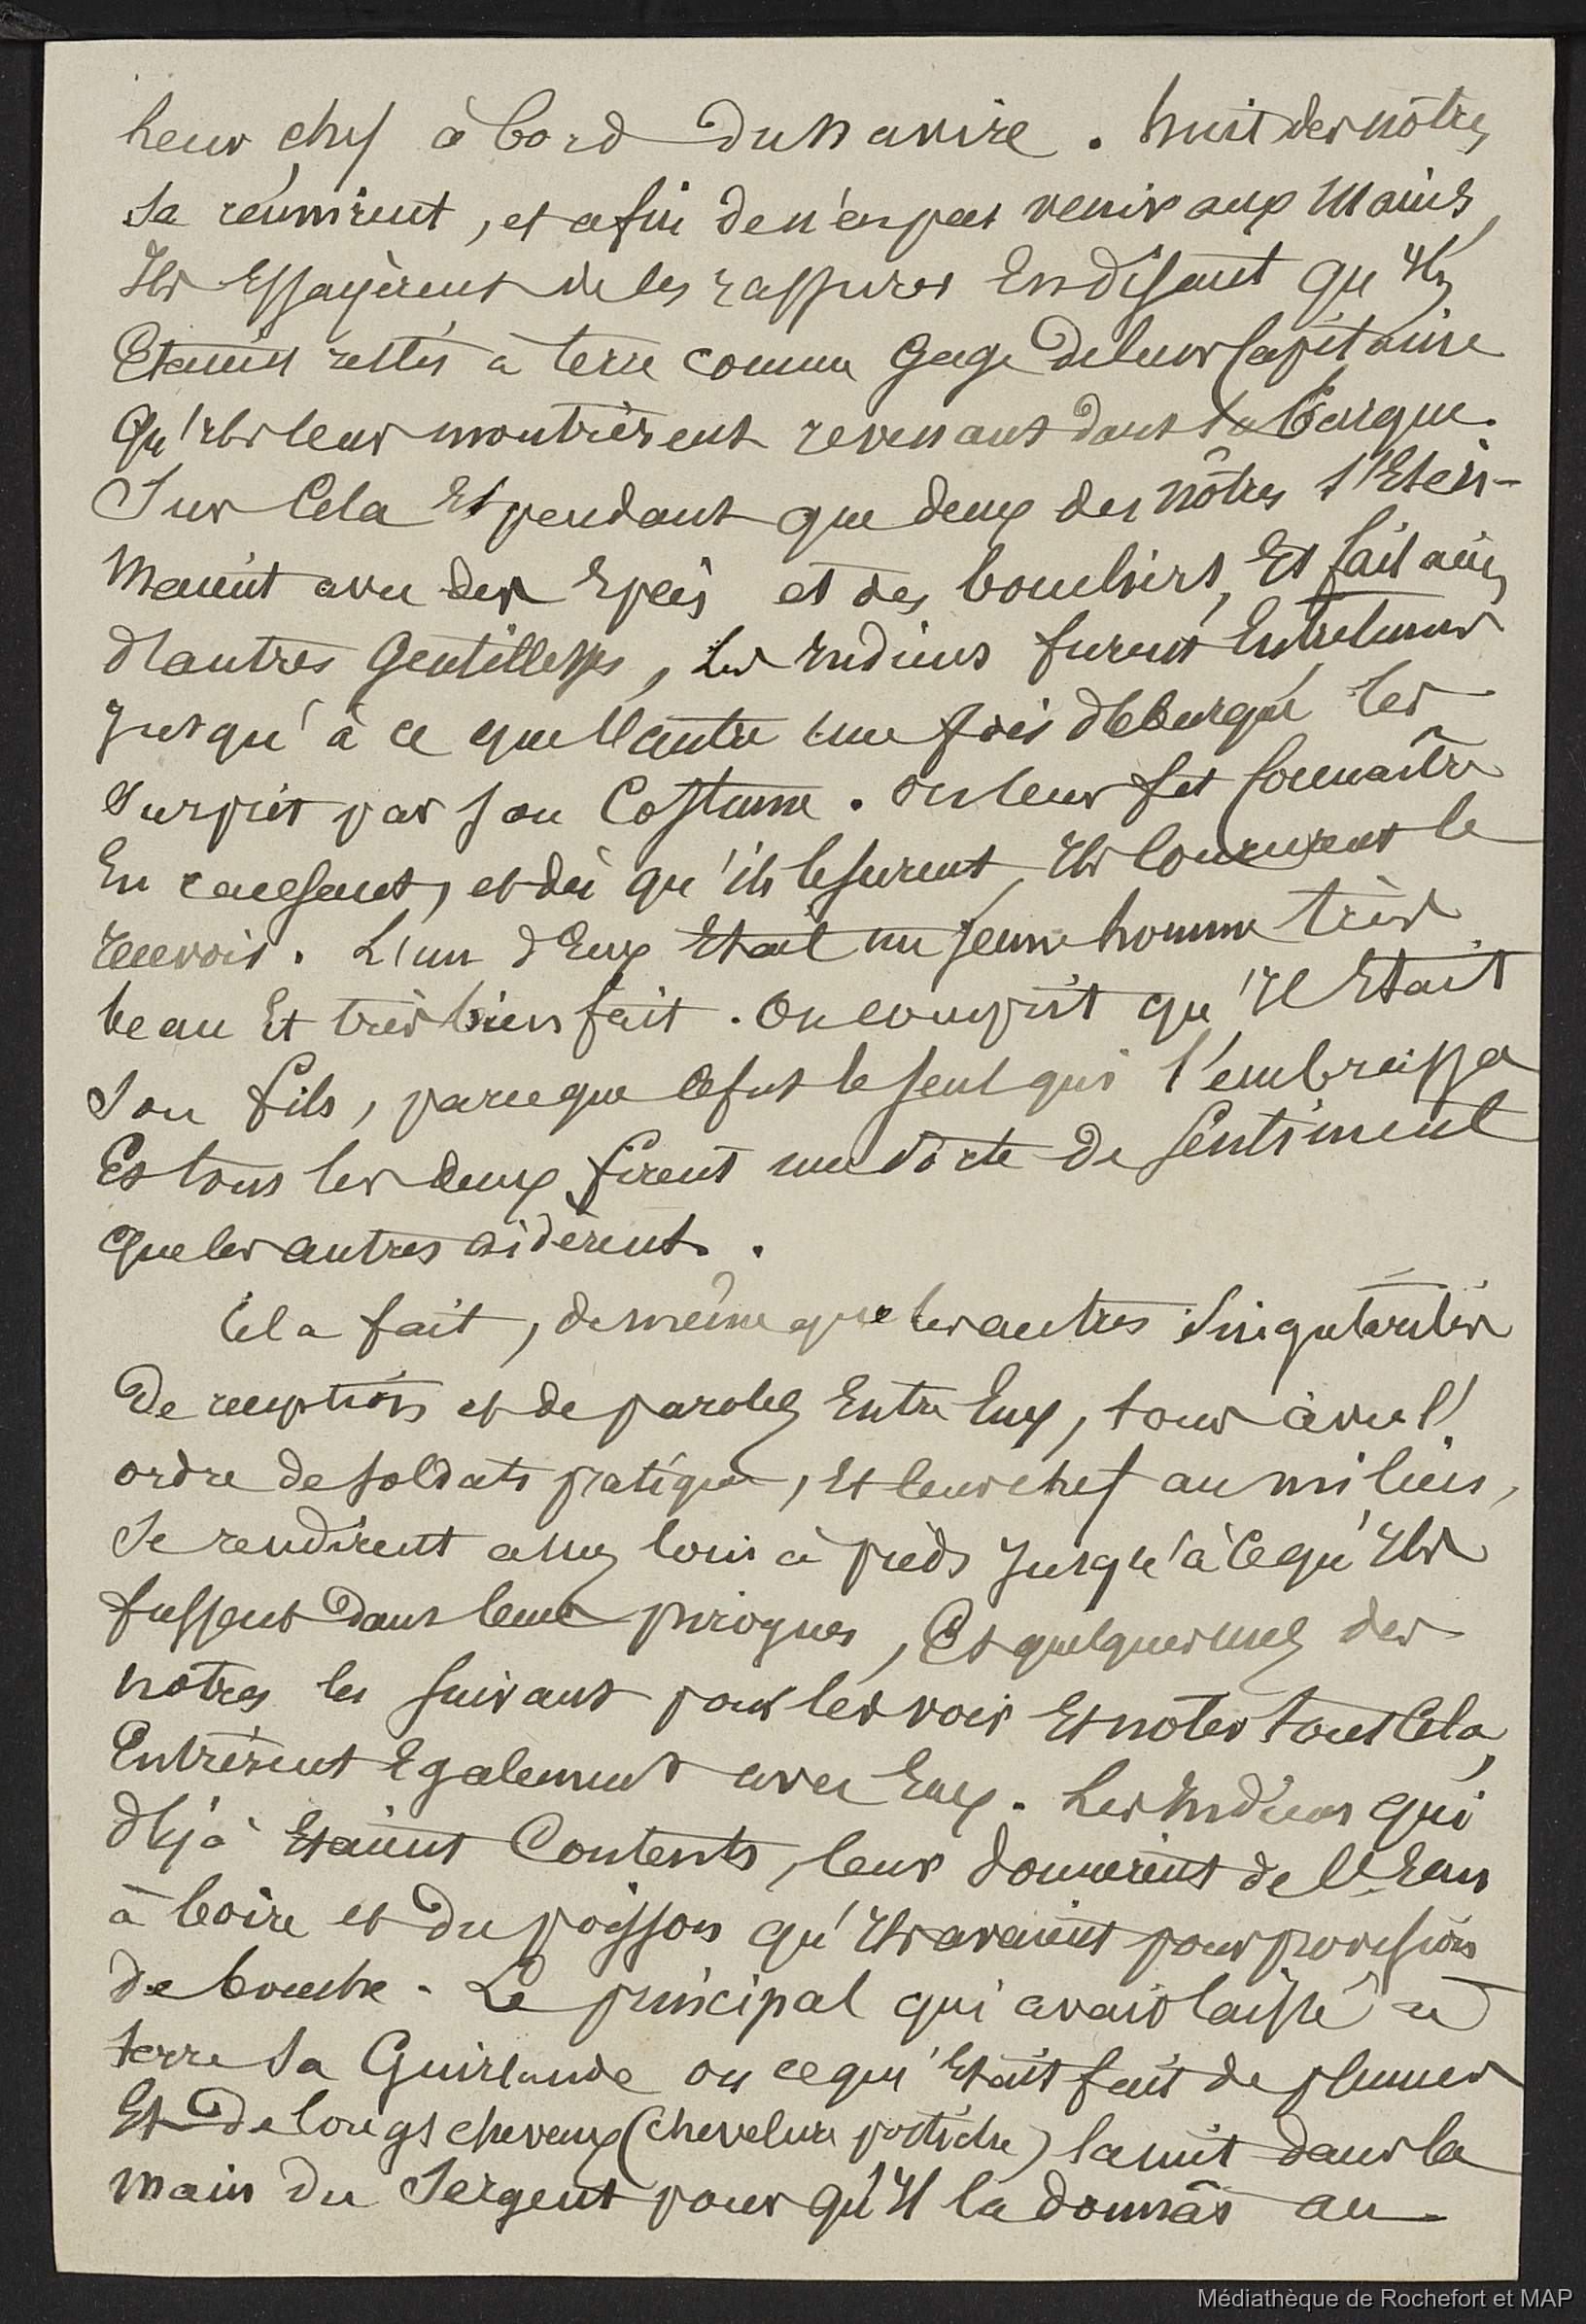 leur chef à bord du navire. huit des nôtres
se réunirent, et afin de n'en pas venir aux mains,
Ils Essayèrent de les rassurer En disant qu'Ils
Etaient restés à terre comme gage de leur Capitaine
Qu'Ils leur montrèrent revenant dans la barque.
Sur Cela Et pendant que deux des nôtres s'Escri-
maient avec des Epées et des boucliers, Et fait ainsi
d'autres Gentillesses, les Indiens furent Entretenus
Jusqu'à ce que l'autre une fois débarqué les
surprit par son Costume. On leur fit Connaître
En causant, et dès qu'ils le surent, Ils Coururent le
recevoir. L'un d'Eux Etait un jeune homme très
beau Et très bien fait. On comprit qu'Il Etait
son fils, parce que Ce fut le seul qui l'embrassa
Et tous les deux firent une sorte de Sentiment
que les autres aidèrent.
Cela fait, de même que les autres Singularités
De réception et de paroles Entre Eux, tous avec l'
ordre de soldats pratiques, Et leur chef au milieu,
Se rendirent assez loin à pieds Jusqu'à Ce qu'Ils
fussent Dans leurs pirogues, Et quelques uns des
notres les suivant pour les voir Et noter tout Cela,
Entrèrent Egalement avec Eux. Les Indiens qui
déjà Etaient Contents, leur donnèrent de l'Eau
à boire et du poisson qu'Ils avaient pour provision
de bouche. Le principal qui avait laissé à
terre sa Guirlande ou ce qui Etait fait de plumes
Et De longs cheveux (chevelure postiche) la mit dans la
main du Sergent pour qu'Il la donnât au
Médiathèque de Rochefort et MAP